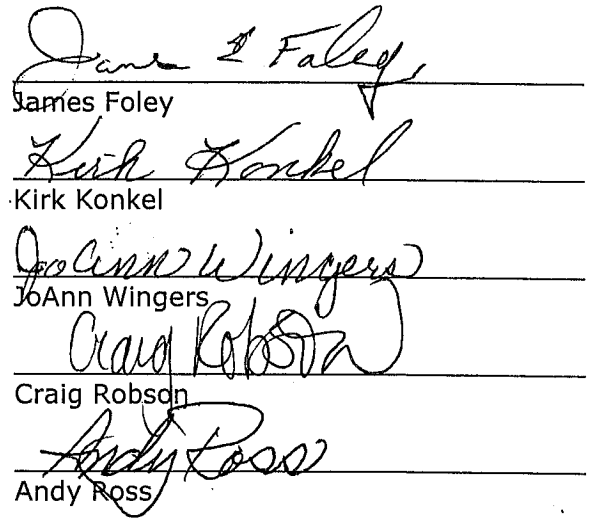 James E Foley
James Foley
Kirk Konkel
Kirk Konkel
JoAnn Wingers
JoAnn Wingers
Craig Robson
Craig Robson
Andy Ross
Andy Ross